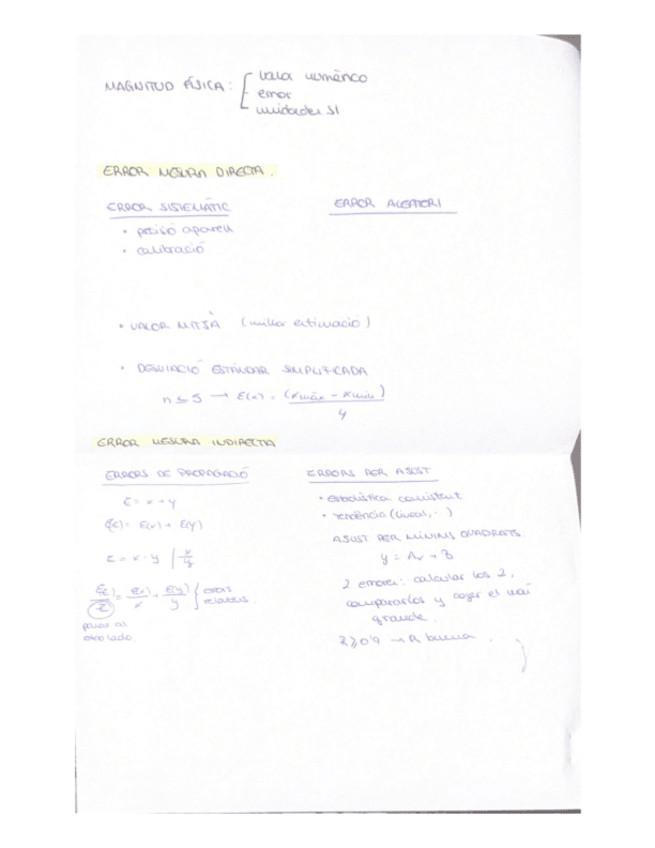 MAGNITUD FÍSICA: { valor numérico
error
unidades SI
ERROR MESURA DIRECTA.
ERROR SISTEMÀTIC
• precisó aparell
• calibració
ERROR ALEATORI
• VALOR MITJÀ (millor estimació)
• DESVIACIÓ ESTÁNDAR SIMPLIFICADA
n ≤ 5 → E(x) = (xmàx - xmin)
4
ERROR MESURA INDIRECTA
ERRORS DE PROPAGACIÓ
z = x + y
E(z) = E(x) + E(y)
z = x · y | x/y
E(z)/z = E(x)/x + E(y)/y } errors
relatius.
pasar al
otro lado.
ERRORS PER AJUST
• estadística consistent
• tendència (lineal, ...)
AJUST PER MÍNIMS QUADRATS.
y = Ax + B
2 errores: calcular los 2,
compararlos y coger el más
grande.
R ≥ 0'9 → R buena.